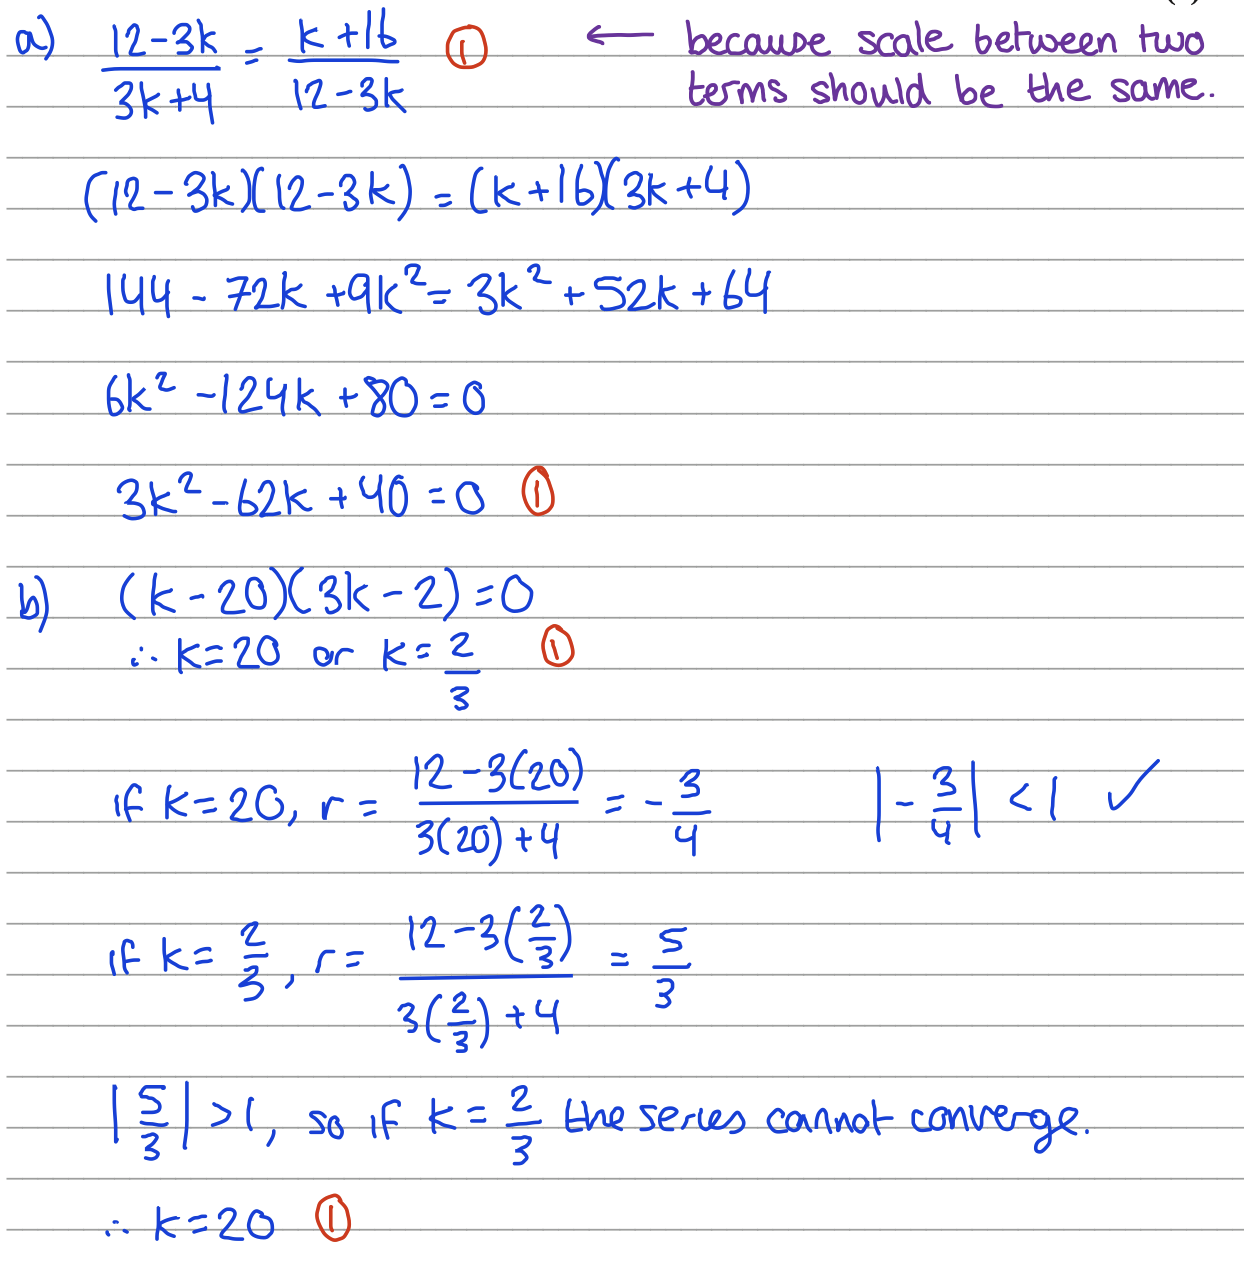 a) (12-3k)/(3k+4) = (k+16)/(12-3k) ① ← because scale between two
terms should be the same.
(12-3k)(12-3k) = (k+16)(3k+4)
144 - 72k + 9k² = 3k² + 52k + 64
6k² - 124k + 80 = 0
3k² - 62k + 40 = 0 ①
b) (k-20)(3k-2) = 0
∴ k=20 or k= 2/3 ①
if k=20, r = (12-3(20))/(3(20)+4) = -3/4 |-3/4| < 1 ✓
if k= 2/3, r= (12-3(2/3))/(3(2/3)+4) = 5/3
|5/3| >1, so if k= 2/3 the series cannot converge.
∴ k=20 ①